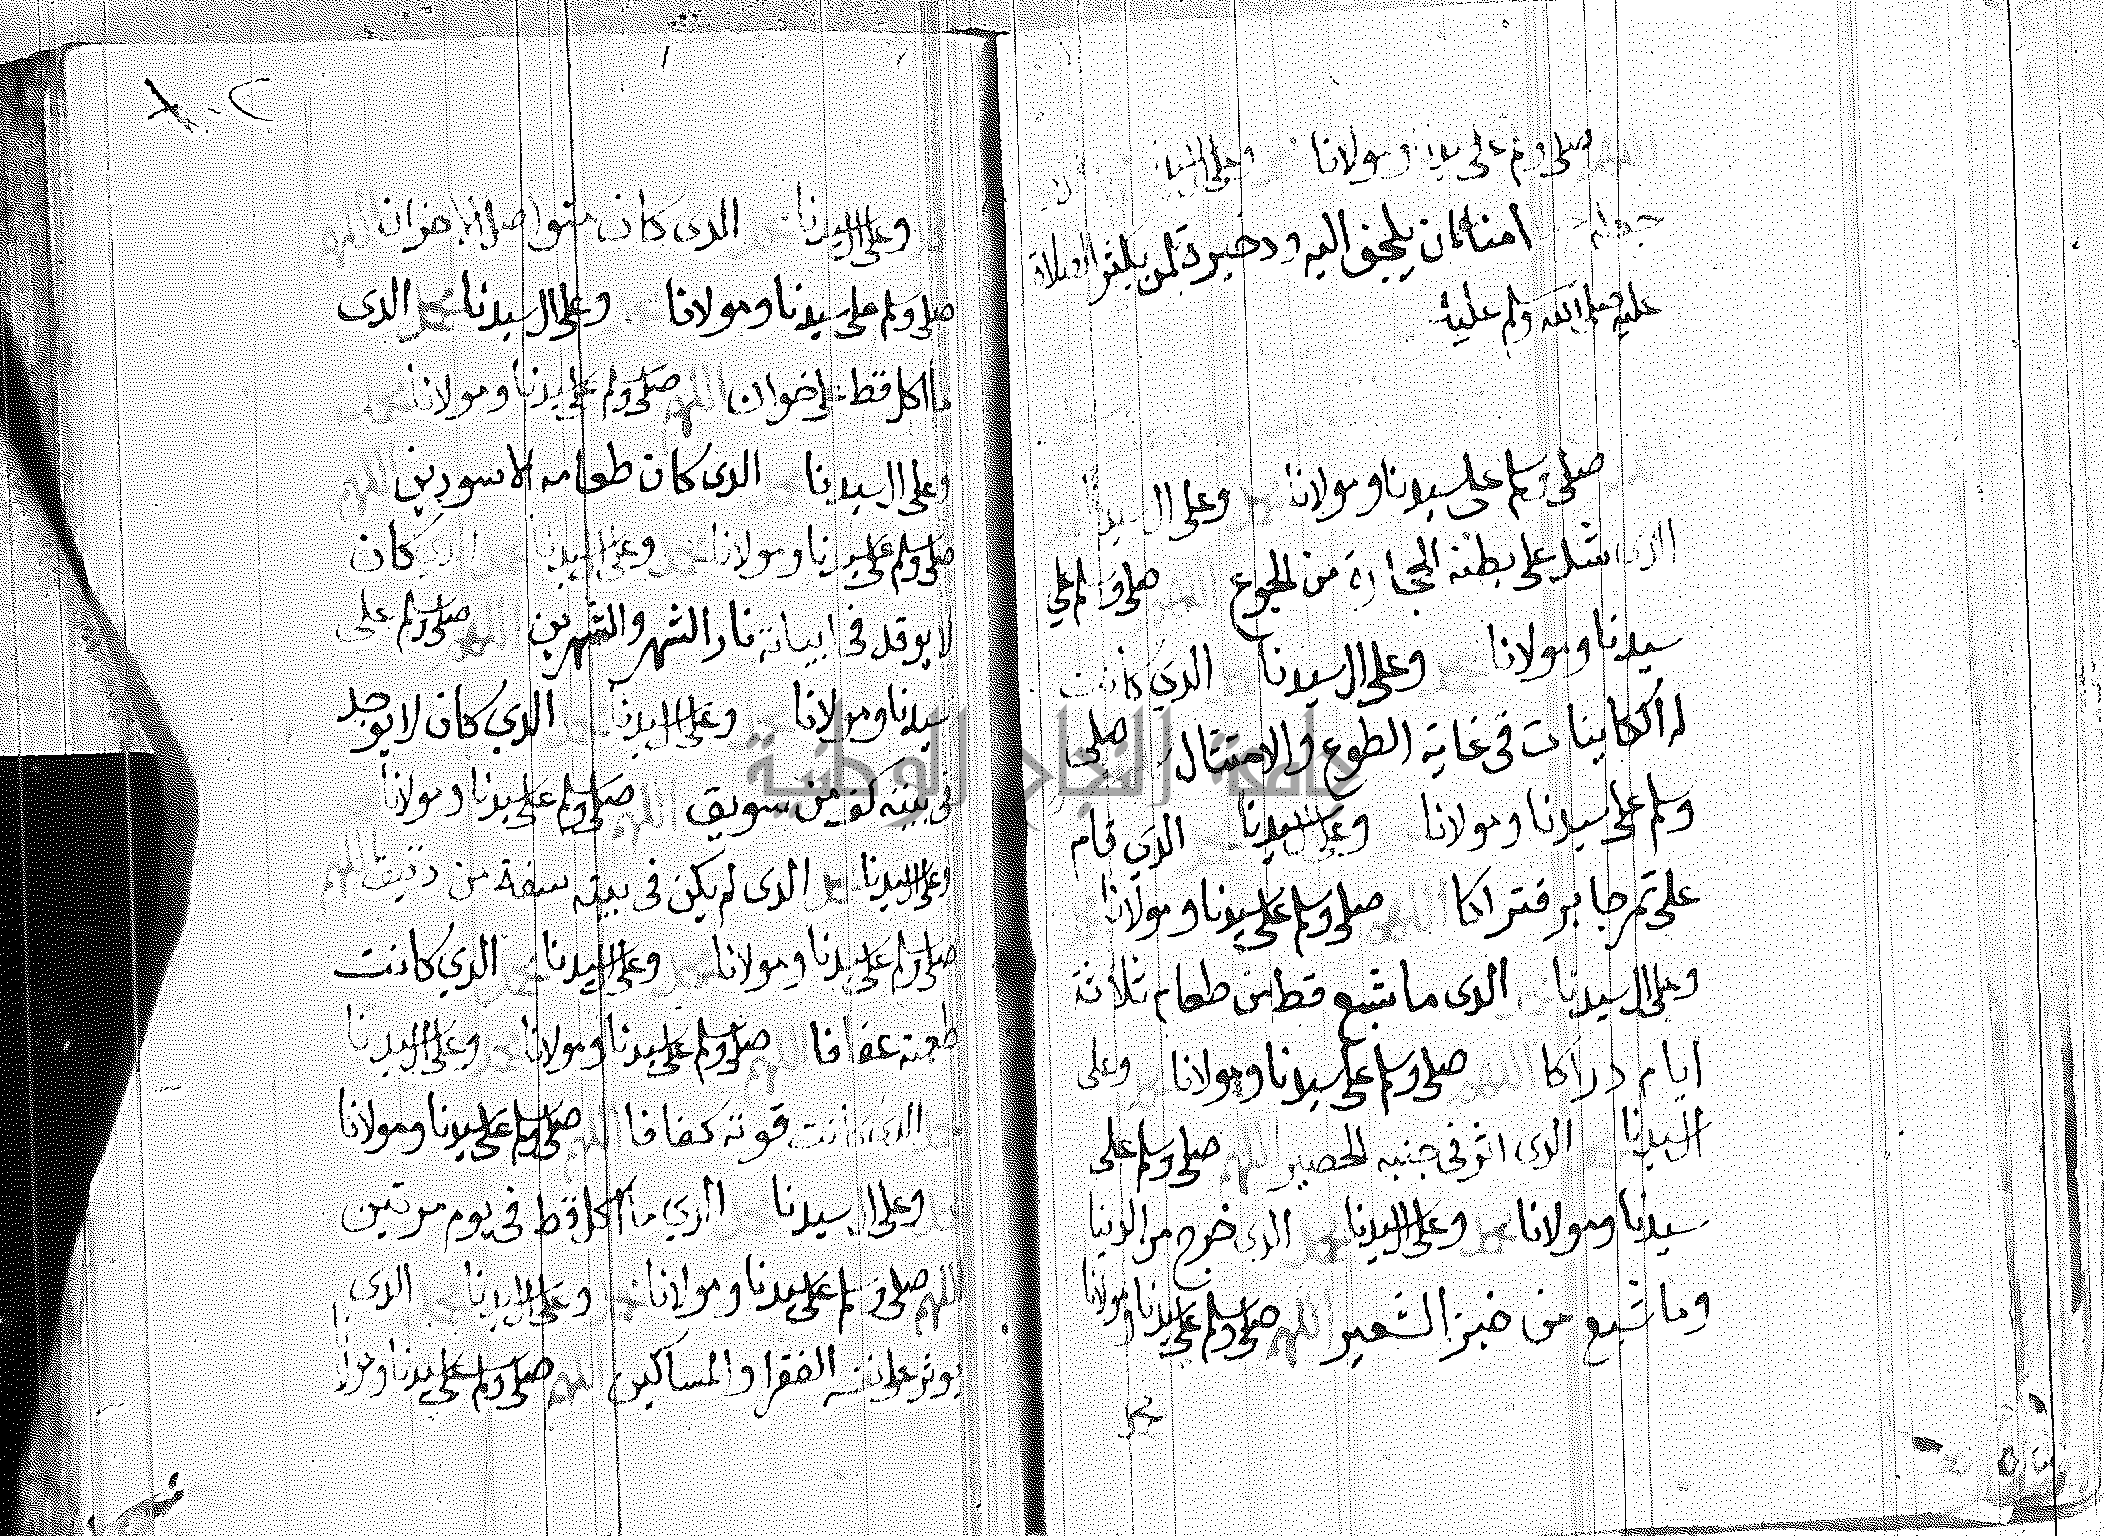 صلى وسلم على سيدنا ومولانا وعلى
امنا لمن يلجئ اليه ودخيرة لمن يكثر الصلاة
عليه صلى الله وسلم عليه
صلى وسلم على سيدنا ومولانا محمد وعلى ال سيدنا
الذى شد على بطنه الحجارة من الجوع اللهم صلى وسلم على
سيدنا ومولانا وعلى ال سيدنا الذي كانت
له الكاينات فى غاية الطوع والامتثال صلى
وسلم على سيدنا ومولانا وعلى ال سيدنا الذي قام
على تمر جابر فتراكا اللهم صلى وسلم على سيدنا ومولانا
وعلى ال سيدنا الذى ما شبع قط من طعام ثلاثة
ايام دراكا اللهم صلى وسلم على سيدنا ومولانا وعلى
ال سيدنا الذى اثر فى جنبه الحصير اللهم صلى وسلم على
سيدنا ومولانا محمد وعلى ال سيدنا محمد الذى خرج من الدنيا
وما شبع من خبز الشعير اللهم صلى وسلم على سيدنا ومولانا
محمد
وعلى ال سيدنا الذى كان متواصل الاحزان اللهم
صلى وسلم على سيدنا ومولانا وعلى ال سيدنا محمد الذى
ما اكل قط على خوان اللهم صلى وسلم على سيدنا ومولانا محمد
وعلى ال سيدنا الذى كان طعامه الاسودين اللهم
صلى وسلم على سيدنا ومولانا محمد وعلى ال سيدنا الذي كان
لا يوقد فى ابياته نار الشهر والشهرين اللهم صلى وسلم على
سيدنا ومولانا وعلى ال سيدنا الذي كان لا يوجد
فى بيته كف من سويق اللهم صلى وسلم على سيدنا ومولانا
وعلى ال سيدنا محمد الذى لم يكن فى بيته سفة من دقيق اللهم
صلى وسلم على سيدنا ومولانا محمد وعلى ال سيدنا الذي كانت
طعمته عفافا اللهم صلى وسلم على سيدنا ومولانا محمد وعلى ال سيدنا
الذى كانت قوته كفافا اللهم صلى وسلم على سيدنا ومولانا
وعلى ال سيدنا الذي ما اكل قط فى يوم مرتين
اللهم صلى وسلم على سيدنا ومولانا محمد وعلى ال سيدنا الذى
يوثر على نفسه الفقرا والمساكين اللهم صلى وسلم على سيدنا ومولانا
جامعة النجاح الوطنية